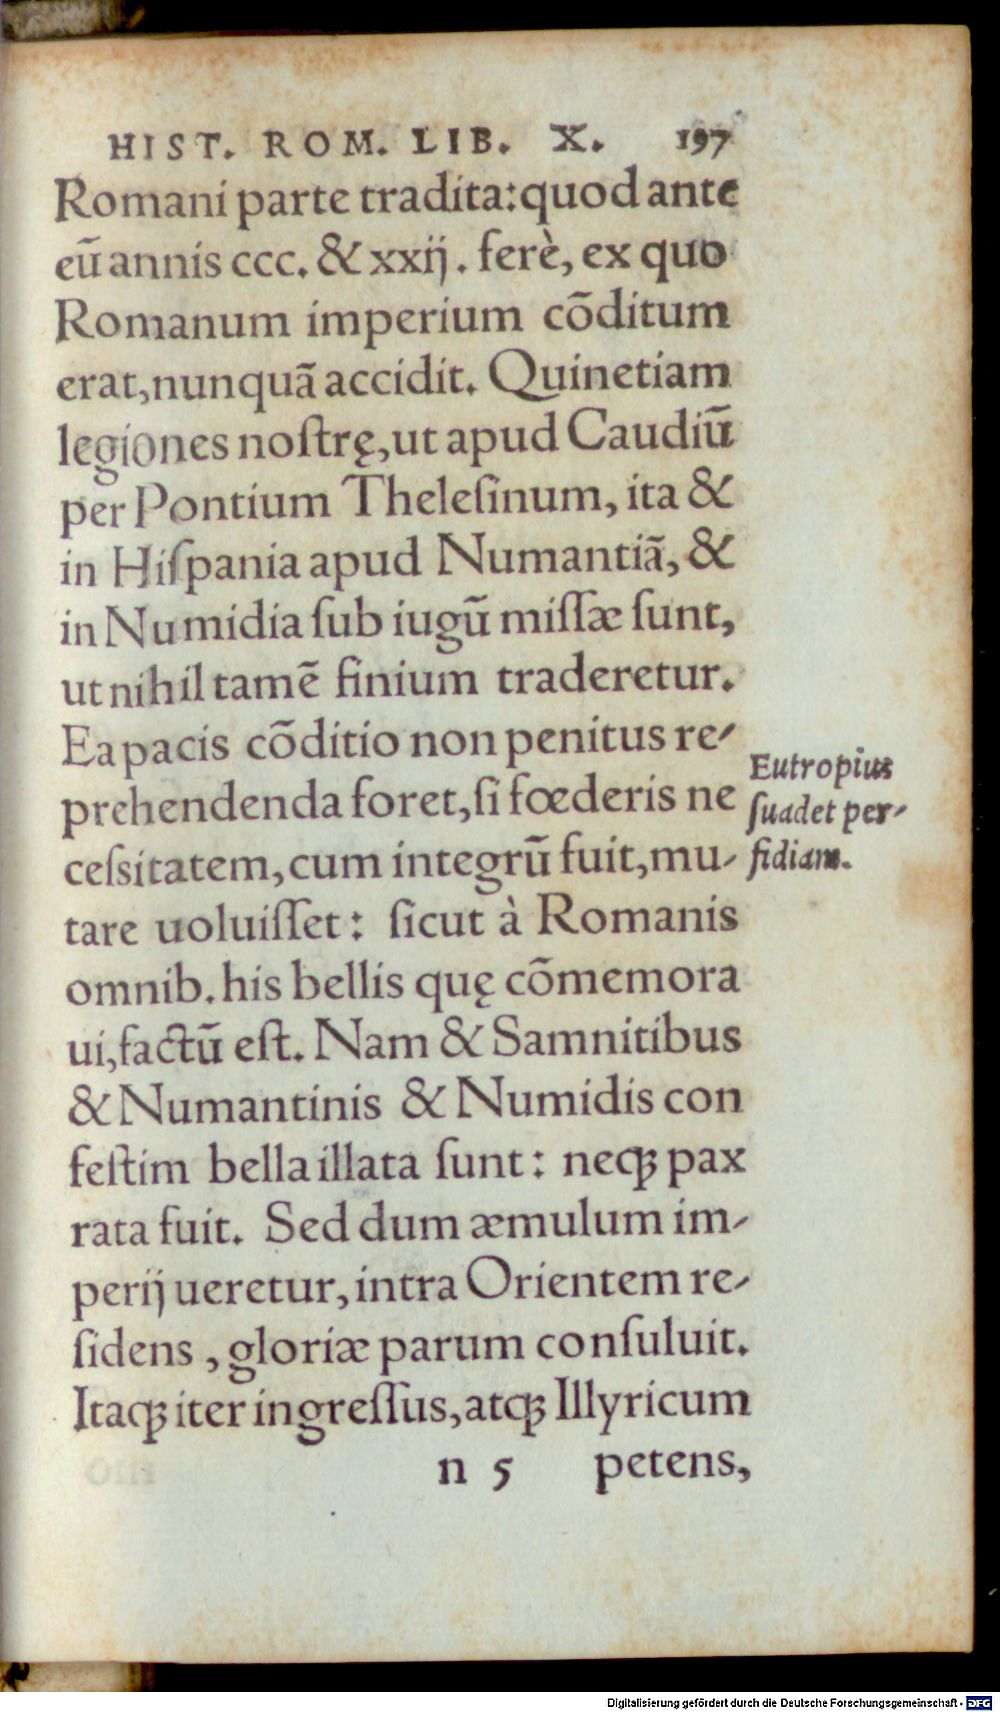 HIST. ROM. LIB. X. 197
Romani parte tradita: quod ante
eũ annis ccc. & xxij. ferè, ex quo
Romanum imperium cõditum
erat, nunquã accidit. Quinetiam
legiones noſtrę, ut apud Caudiũ
per Pontium Theleſinum, ita &
in Hiſpania apud Numantiã, &
in Numidia ſub iugũ miſſæ ſunt,
ut nihil tamẽ finium traderetur.
Ea pacis cõditio non penitus re-
prehendenda foret, ſi fœderis ne
ceſsitatem, cum integrũ fuit, mu-
tare uoluiſſet: ſicut à Romanis
omnib. his bellis quę cõmemora
ui, factũ eſt. Nam & Samnitibus
& Numantinis & Numidis con
feſtim bella illata ſunt: neqꝫ pax
rata fuit. Sed dum æmulum im-
perij ueretur, intra Orientem re-
ſidens, gloriæ parum conſuluit.
Itaqꝫ iter ingreſſus, atqꝫ Illyricum
n 5 petens,
Eutropius
ſuadet per-
fidiam.
Digitalisierung gefördert durch die Deutsche Forschungsgemeinschaft - DFG